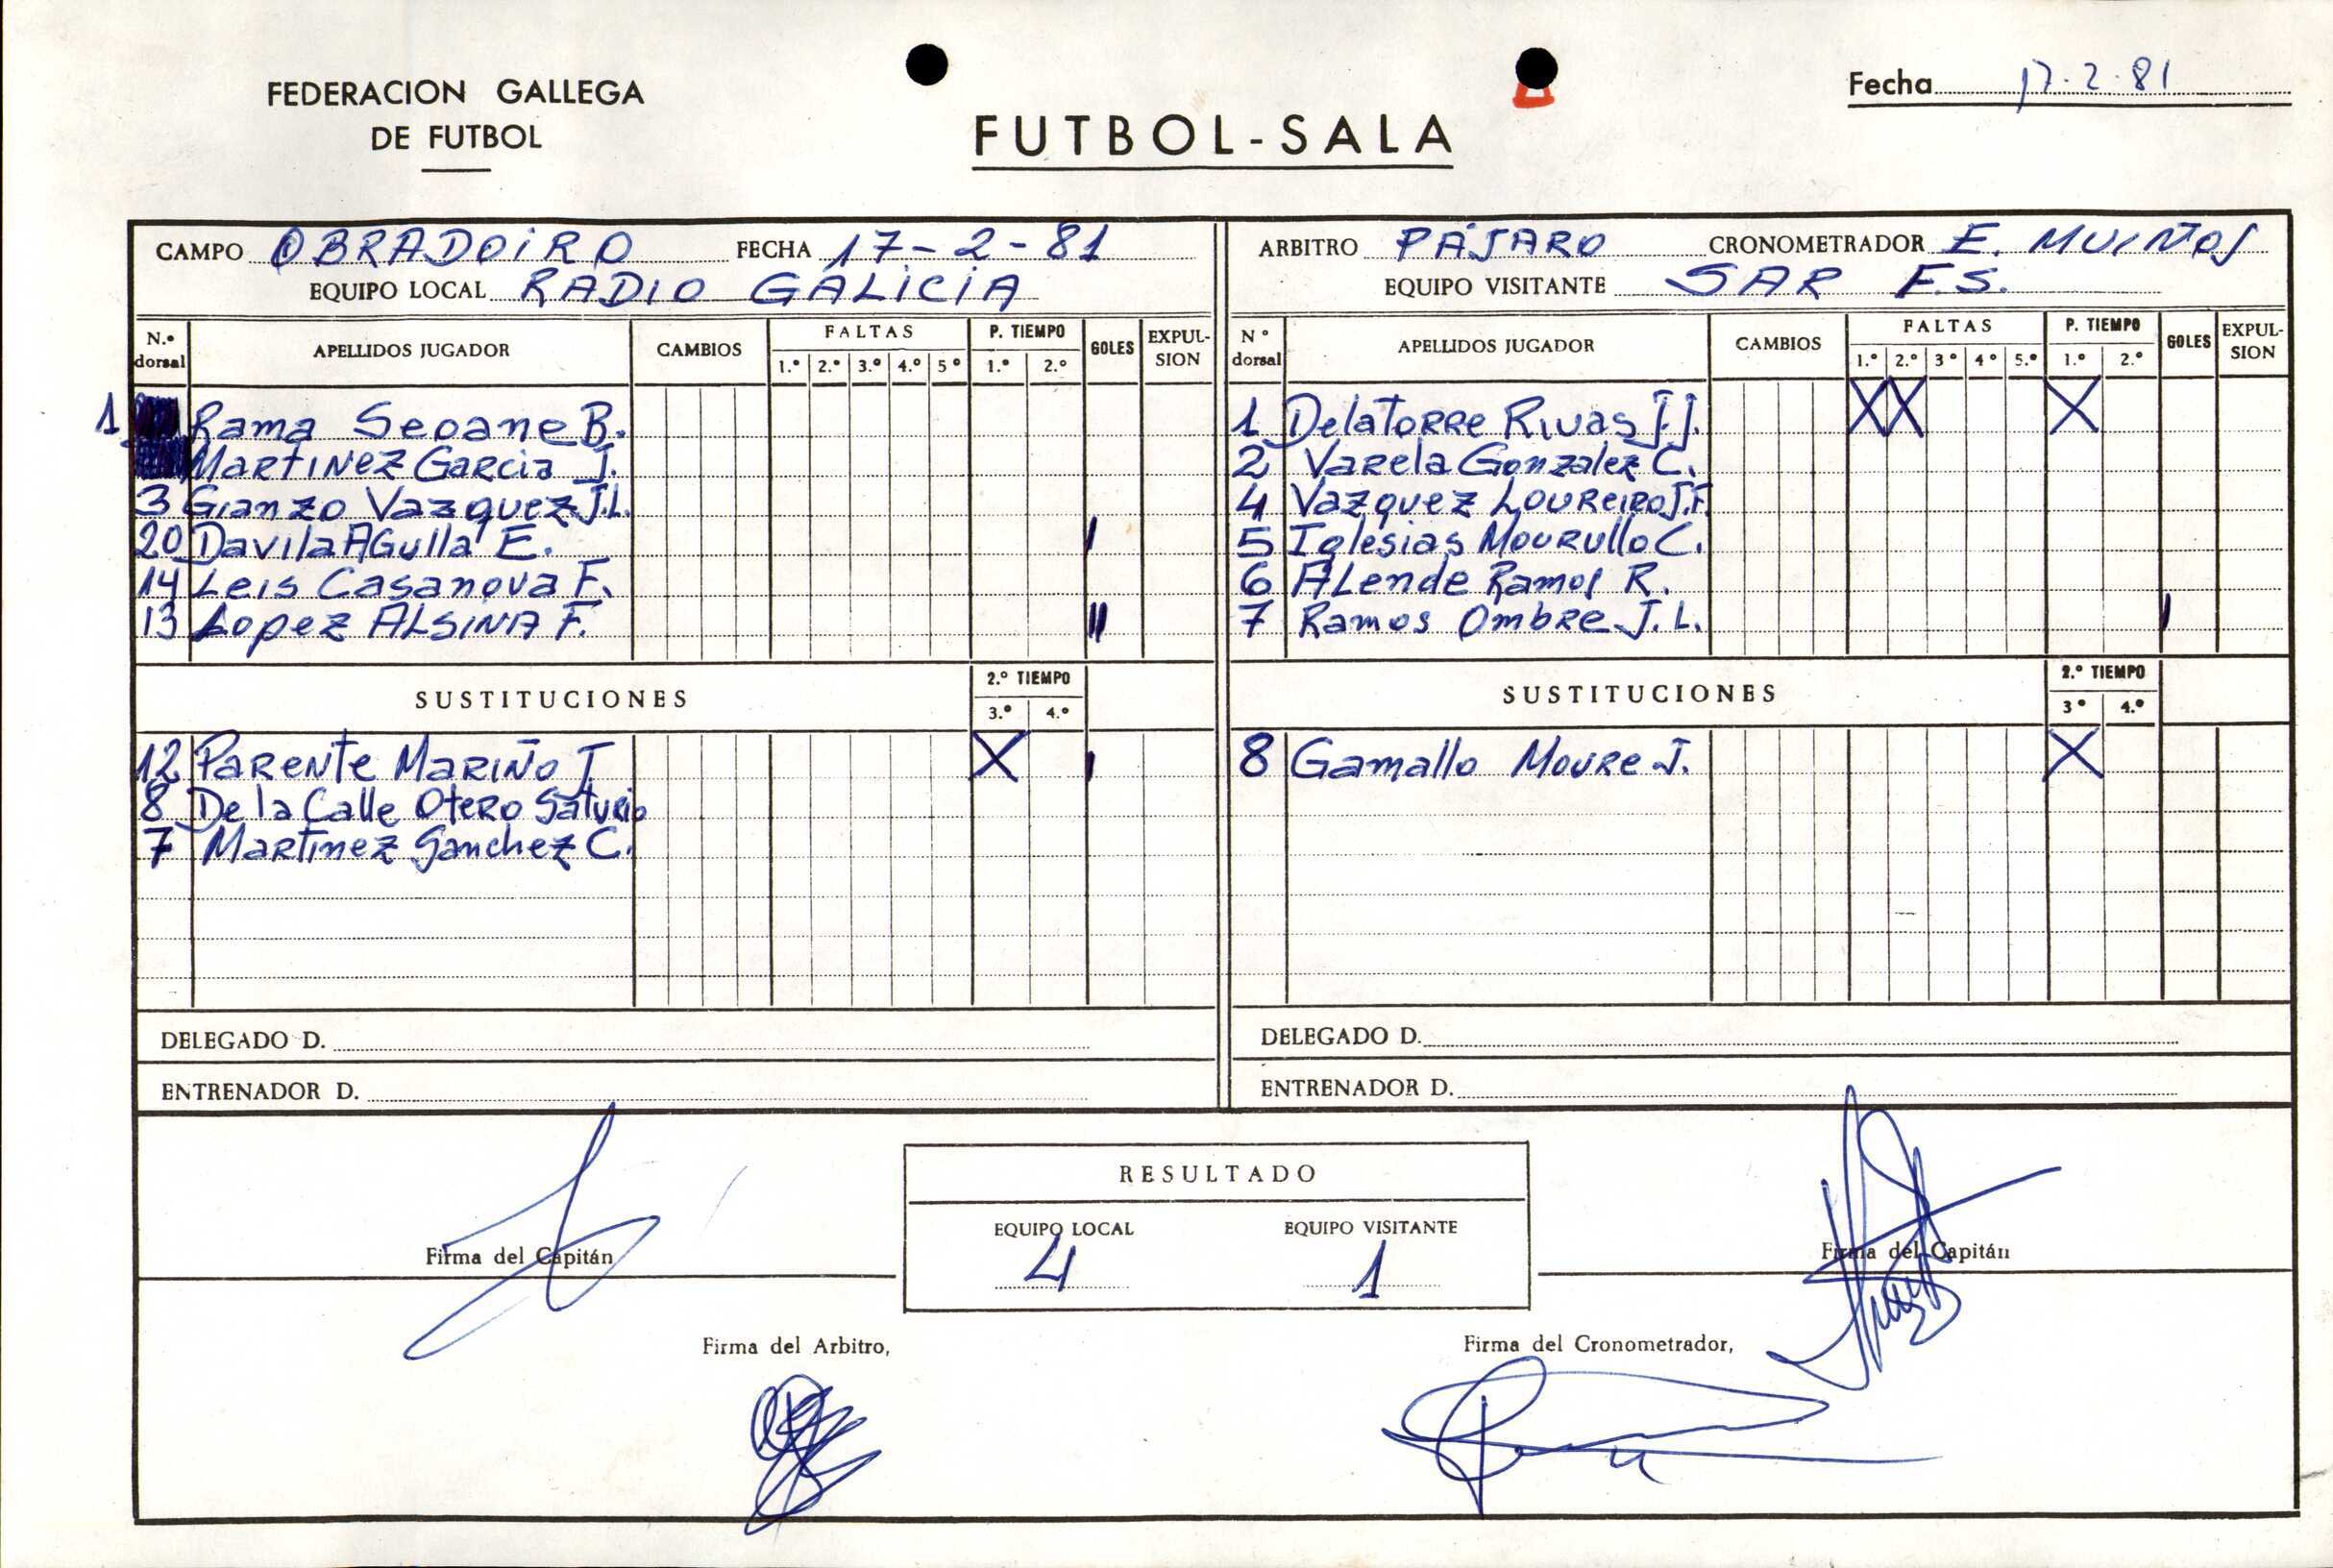 FEDERACION GALLEGA
DE FUTBOL
FUTBOL-SALA
Fecha 17.2.81
CAMPO OBRADOIRO FECHA 17-2-81
EQUIPO LOCAL RADIO GALICIA
N.º dorsal APELLIDOS JUGADOR CAMBIOS FALTAS 1.º 2.º 3.º 4.º 5º P. TIEMPO 1.º 2.º GOLES EXPULSION
1 Rama Seoane B.
Martinez Garcia J.
3 Gianzo Vazquez J.L.
20 Davila Agulla E. I
14 Leis Casanova F.
13 Lopez ALSINA F. II
SUSTITUCIONES 2.º TIEMPO 3.º 4.º
12 Parente Mariño J. X I
8 De la Calle Otero Saturio
7 Martinez Sanchez C.
DELEGADO D.
ENTRENADOR D.
ARBITRO PÁJARO CRONOMETRADOR E. MUIÑOS
EQUIPO VISITANTE SAR F.S.
N º dorsal APELLIDOS JUGADOR CAMBIOS FALTAS 1.º 2.º 3º 4º 5.º P. TIEMPO 1.º 2.º GOLES EXPULSION
1 DelaTorre Rivas J.J. X X X
2 Varela Gonzalez C.
4 Vazquez Loureiro J.F.
5 Iglesias Mourullo C.
6 ALende Ramos R.
7 Ramos Ombre J.L. I
SUSTITUCIONES 2.º TIEMPO 3º 4.º
8 Gamallo Moure J. X
DELEGADO D.
ENTRENADOR D.
RESULTADO
EQUIPO LOCAL EQUIPO VISITANTE
4 1
Firma del Capitán
Firma del Capitán
Firma del Arbitro,
Firma del Cronometrador,